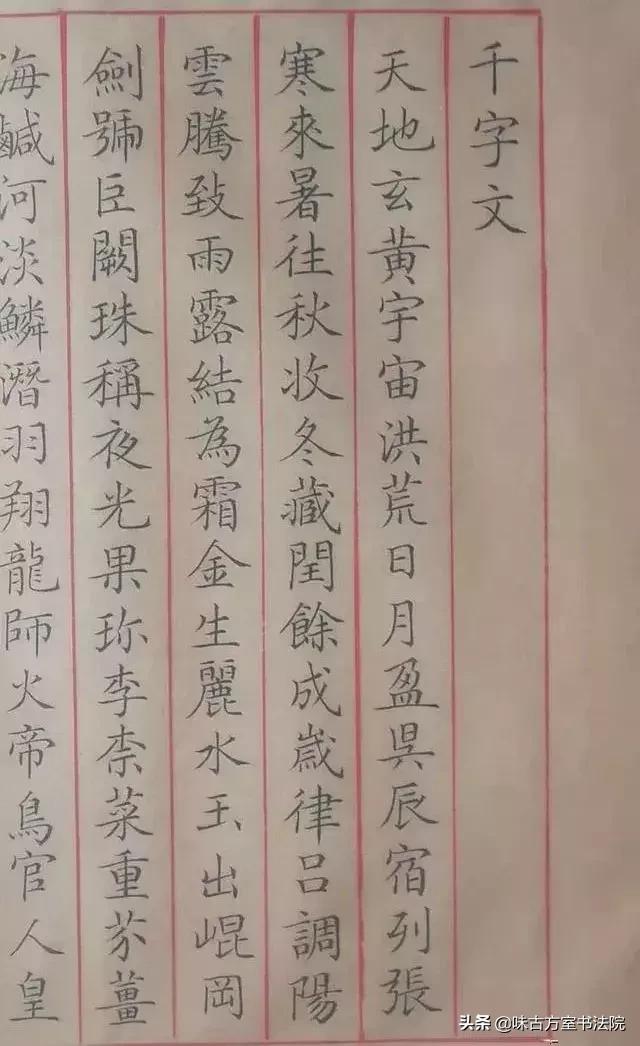 千字文
天地玄黄宇宙洪荒日月盈昃辰宿列張
寒來暑往秋收冬藏閏餘成歲律吕調陽
雲騰致雨露結為霜金生麗水玉出崐岡
劍號巨闕珠稱夜光果珍李柰菜重芥薑
海鹹河淡鱗潛羽翔龍師火帝鳥官人皇
头条 @味古方室书法院